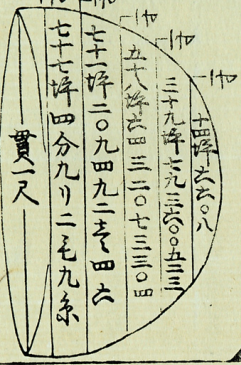 一寸
一寸
一寸
十四坪六六〇八
三十九坪七九三六〇〇五二三
五十八坪六四三二〇七三三〇四
七十一坪二〇九四九二壱四六
七十七坪四分九リ二毛九糸
貫一尺